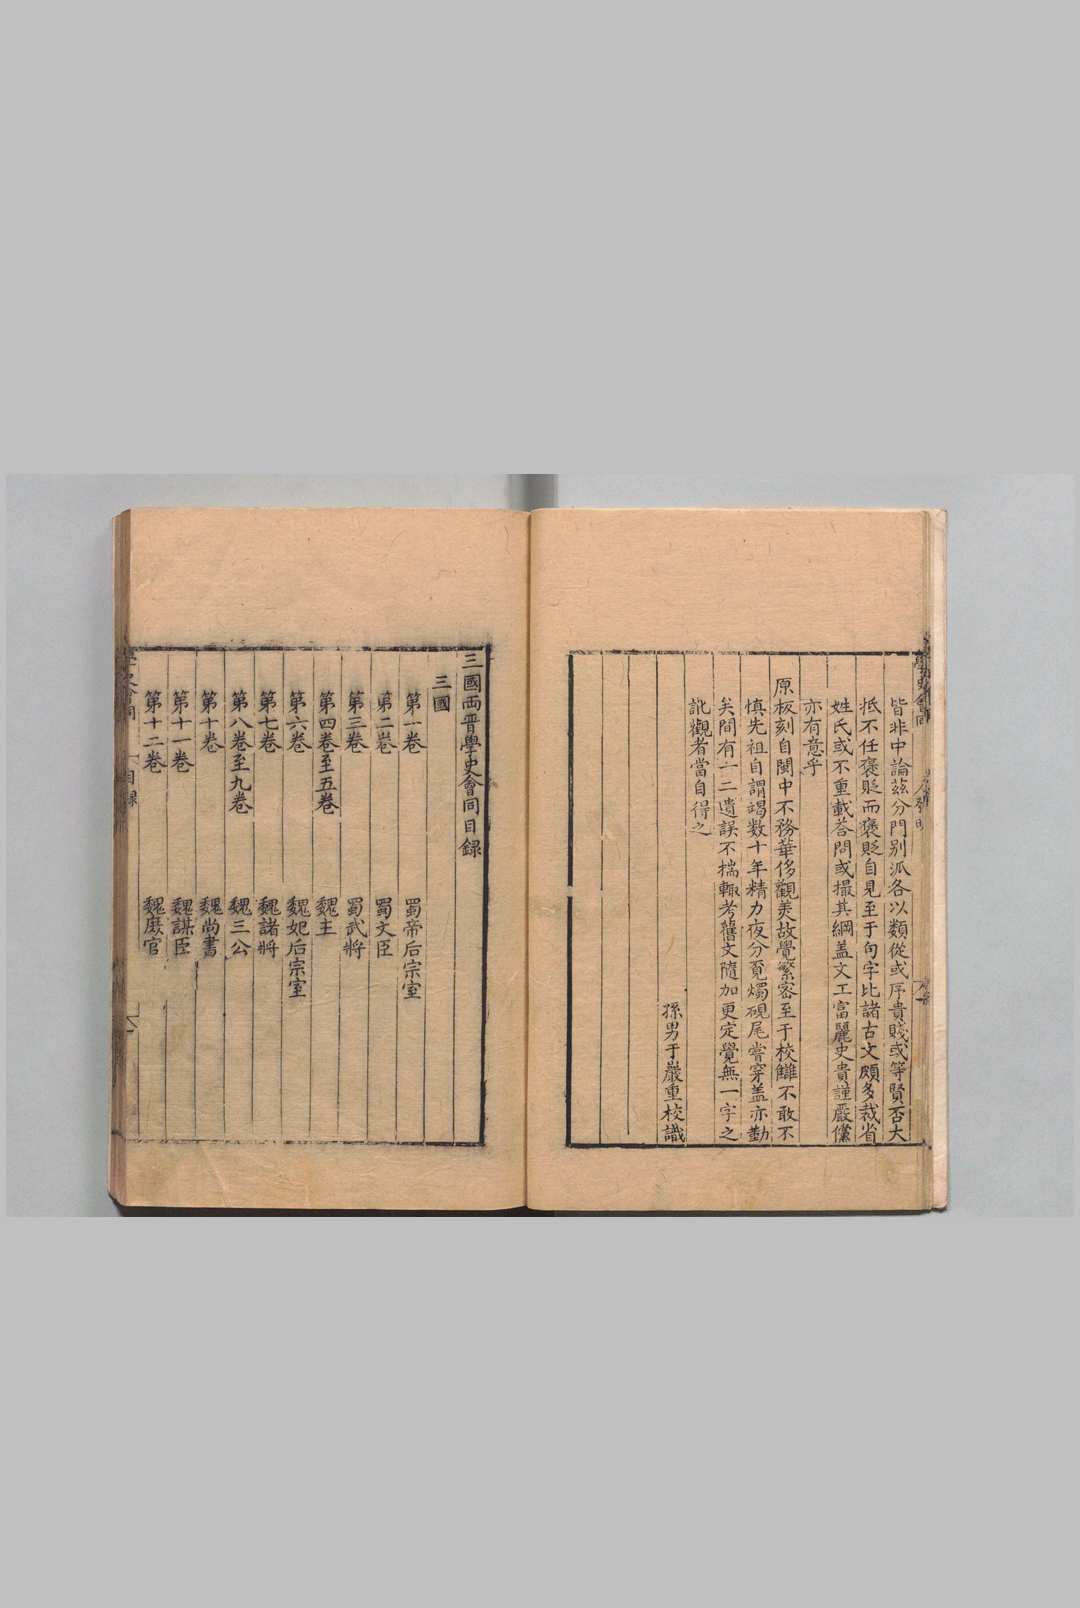 皆非中論茲分門別派各以類從或序貴賤或等賢否大
抵不任褒貶而褒貶自見至于句字比諸古文頗多裁省
姓氏或不重載荅問或撮其綱盖文工富麗史貴謹嚴儻
亦有意乎
原板刻自閩中不務華侈觀美故覺繁密至于校讎不敢不
慎先祖自謂竭数十年精力夜分覓燭硯尾嘗穿盖亦勤
矣間有一二遺誤不揣輙考舊文隨加更定覺無一字之
訛觀者當自得之
孫男于嚴重校識
三國兩晋學史會同目録
三國
第一卷 蜀帝后宗室
第二卷 蜀文臣
第三卷 蜀武將
第四卷至五卷 魏主
第六卷 魏妃后宗室
第七卷 魏諸將
第八卷至九卷 魏三公
第十卷 魏尚書
第十一卷 魏謀臣
第十二卷 魏庶官